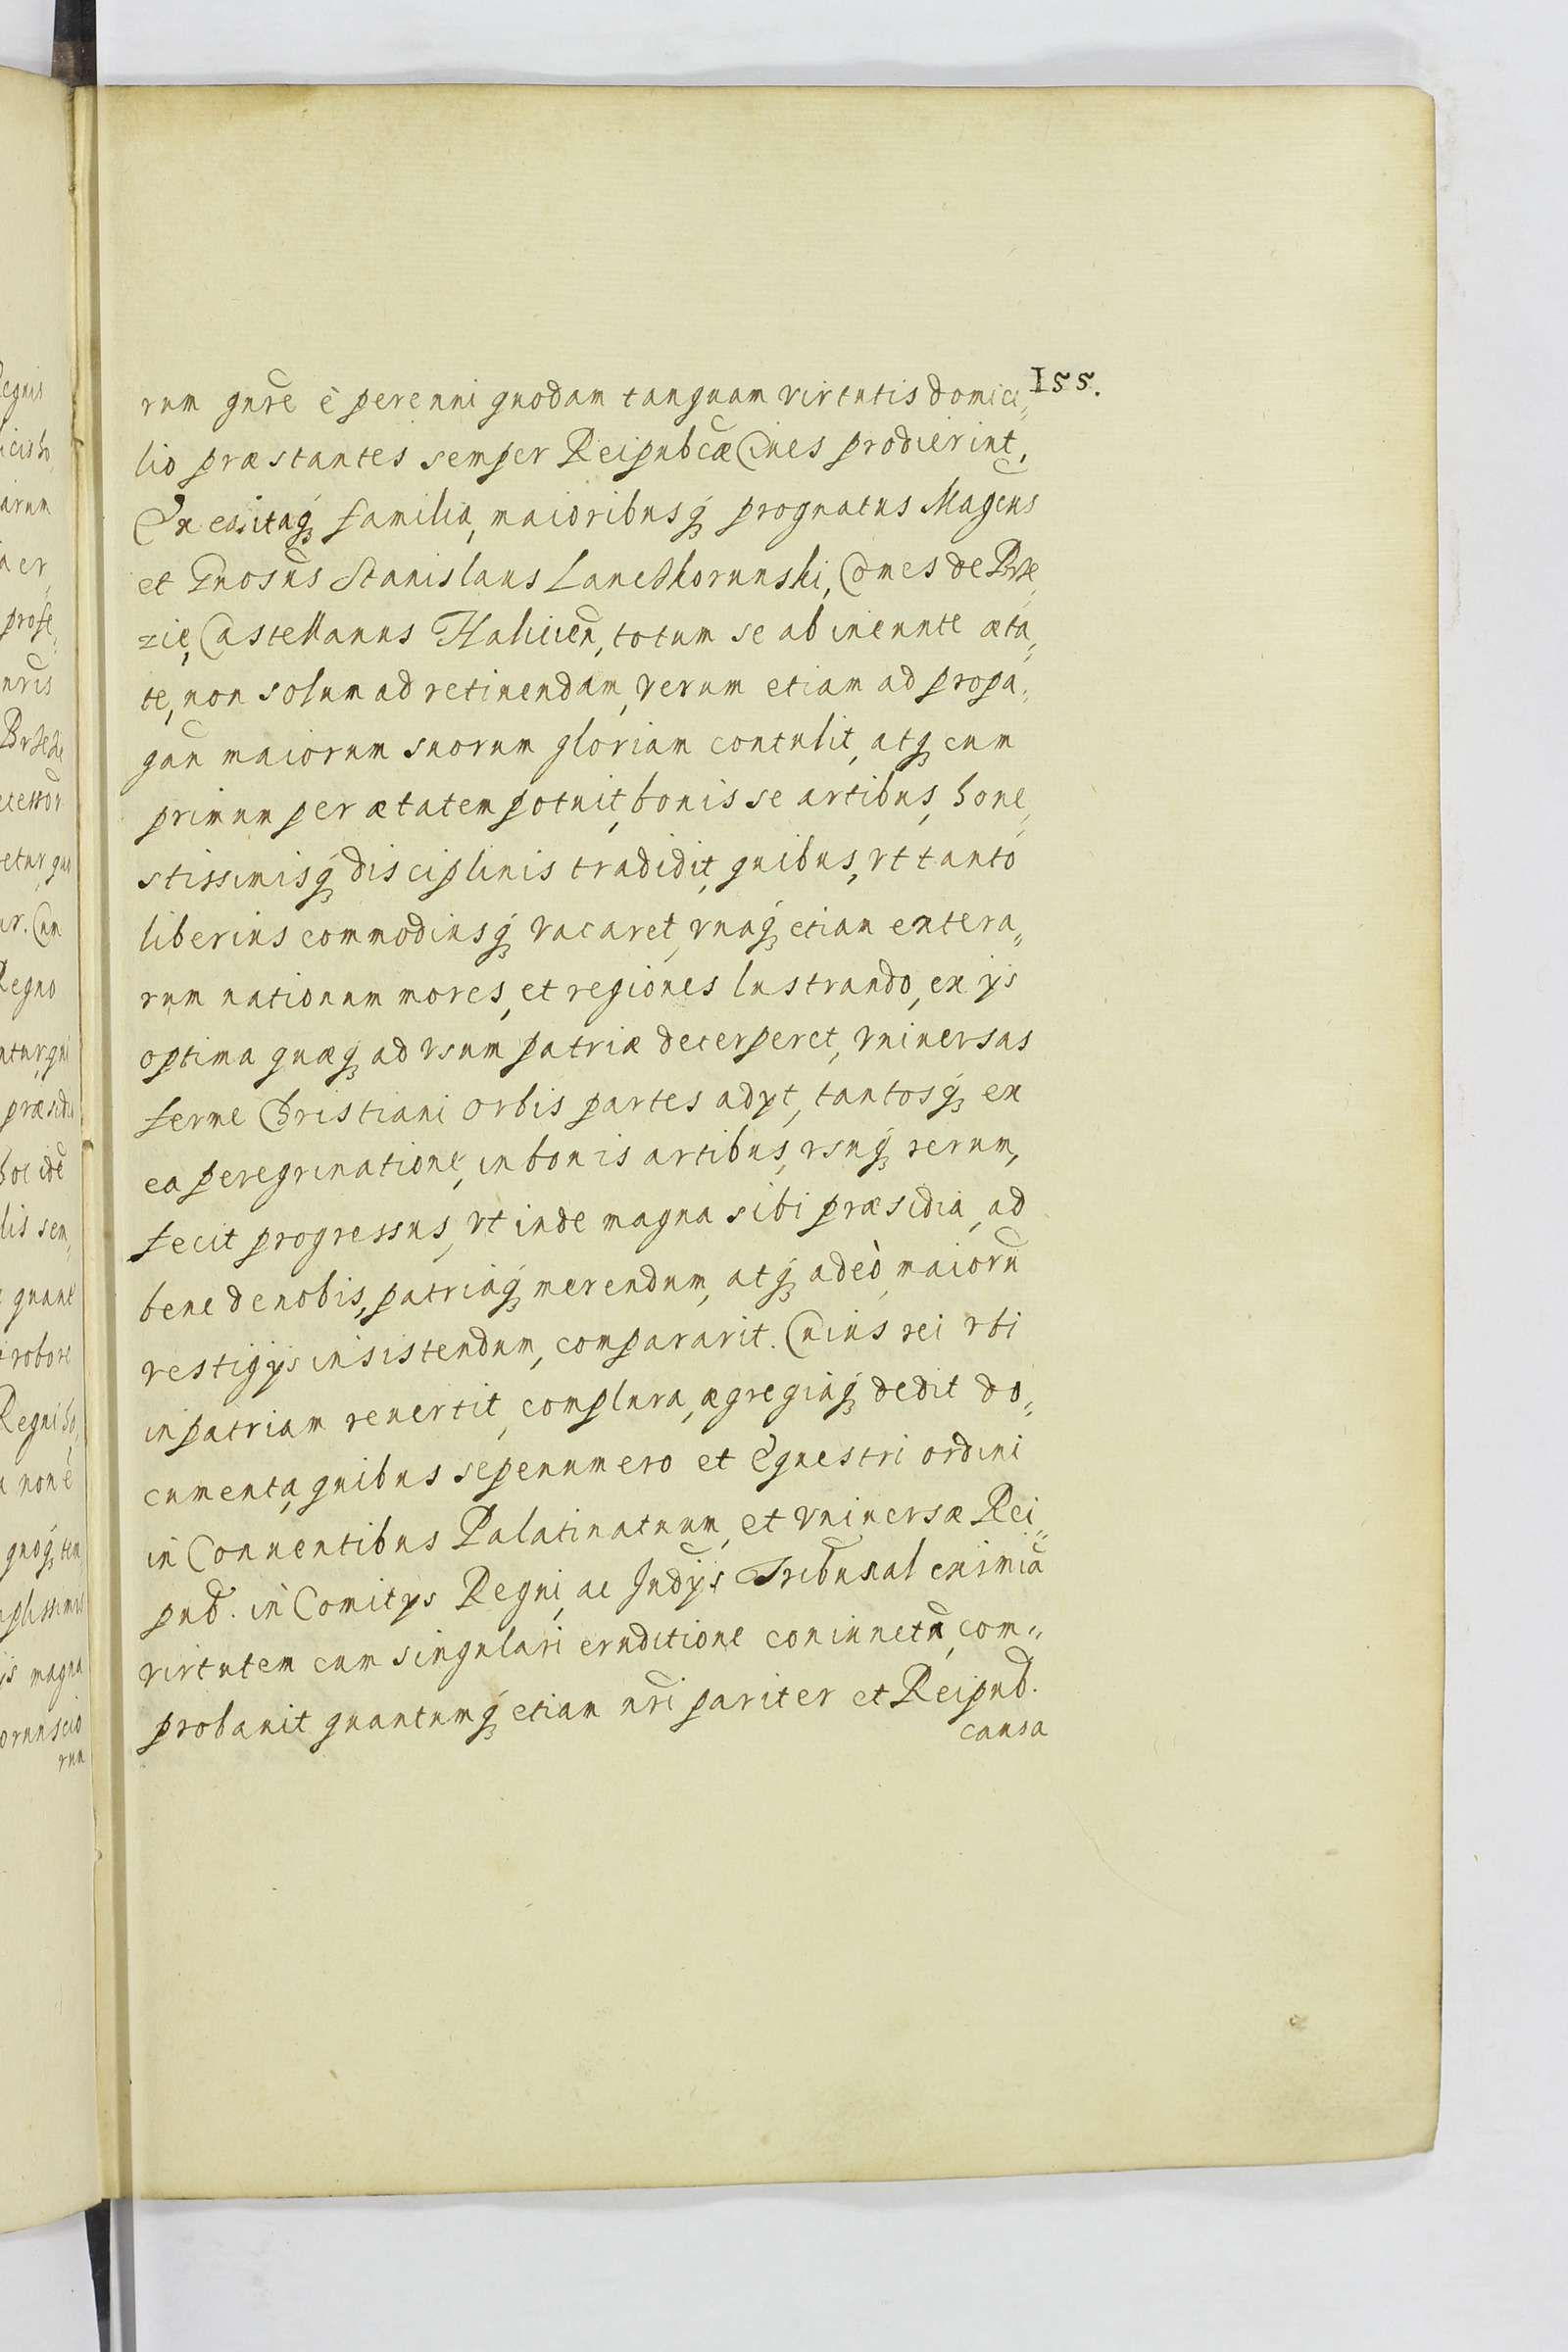 155.
rum qure è perenni quodam tanquam virtutis domici„
lio præstantes semper Reipubcæ Ciues prodierint,
Ex ea itaq́ familia, maioribusq́ prognatus Magcus
et Gnosus Stanislaus Lanczkorunski, Comes de Brze„
zie, Castellanus Halicień, totum se ab ineunte æta„
te, non solum ad retinendam, verum etiam ad propa„
gań maiorum suorum gloriam contulit, atq́ cum
primum per ætatem potuit, bonis se artibus, hone„
stissimisq́ disciplinis tradidit, quibus, vt tanto
liberius commodiusq́ vacaret, vnaq́ etiam extera„
rum nationum mores, et regiones lustrando, ex ijs
optima quæq́ ad vsum patriæ decerperet, vniuersas
ferme Christiani orbis partes adijt, tantosq́ ex
ea peregrinatione, in bonis artibus, vsuq́ rerum,
fecit progressus, vt inde magna sibi præsidia, ad
bene de nobis, patriaq́ merendum, atq́ adeò, maiorū
vestigijs insistendum, compararit. Cuius rei vbi
in patriam reuertit, complura, ægregiaq́ dedit do„
cumenta, quibus sepenumero et Equestri ordini
in Conuentibus Palatinatuum, et vniuersæ Rei„
pub. in Comitijs Regni, ac Judijs Tribunal eximiā
virtutem cum singulari eruditione coniunctā, com„
probauit quantumq́ etiam nri pariter et Reipub.
causa